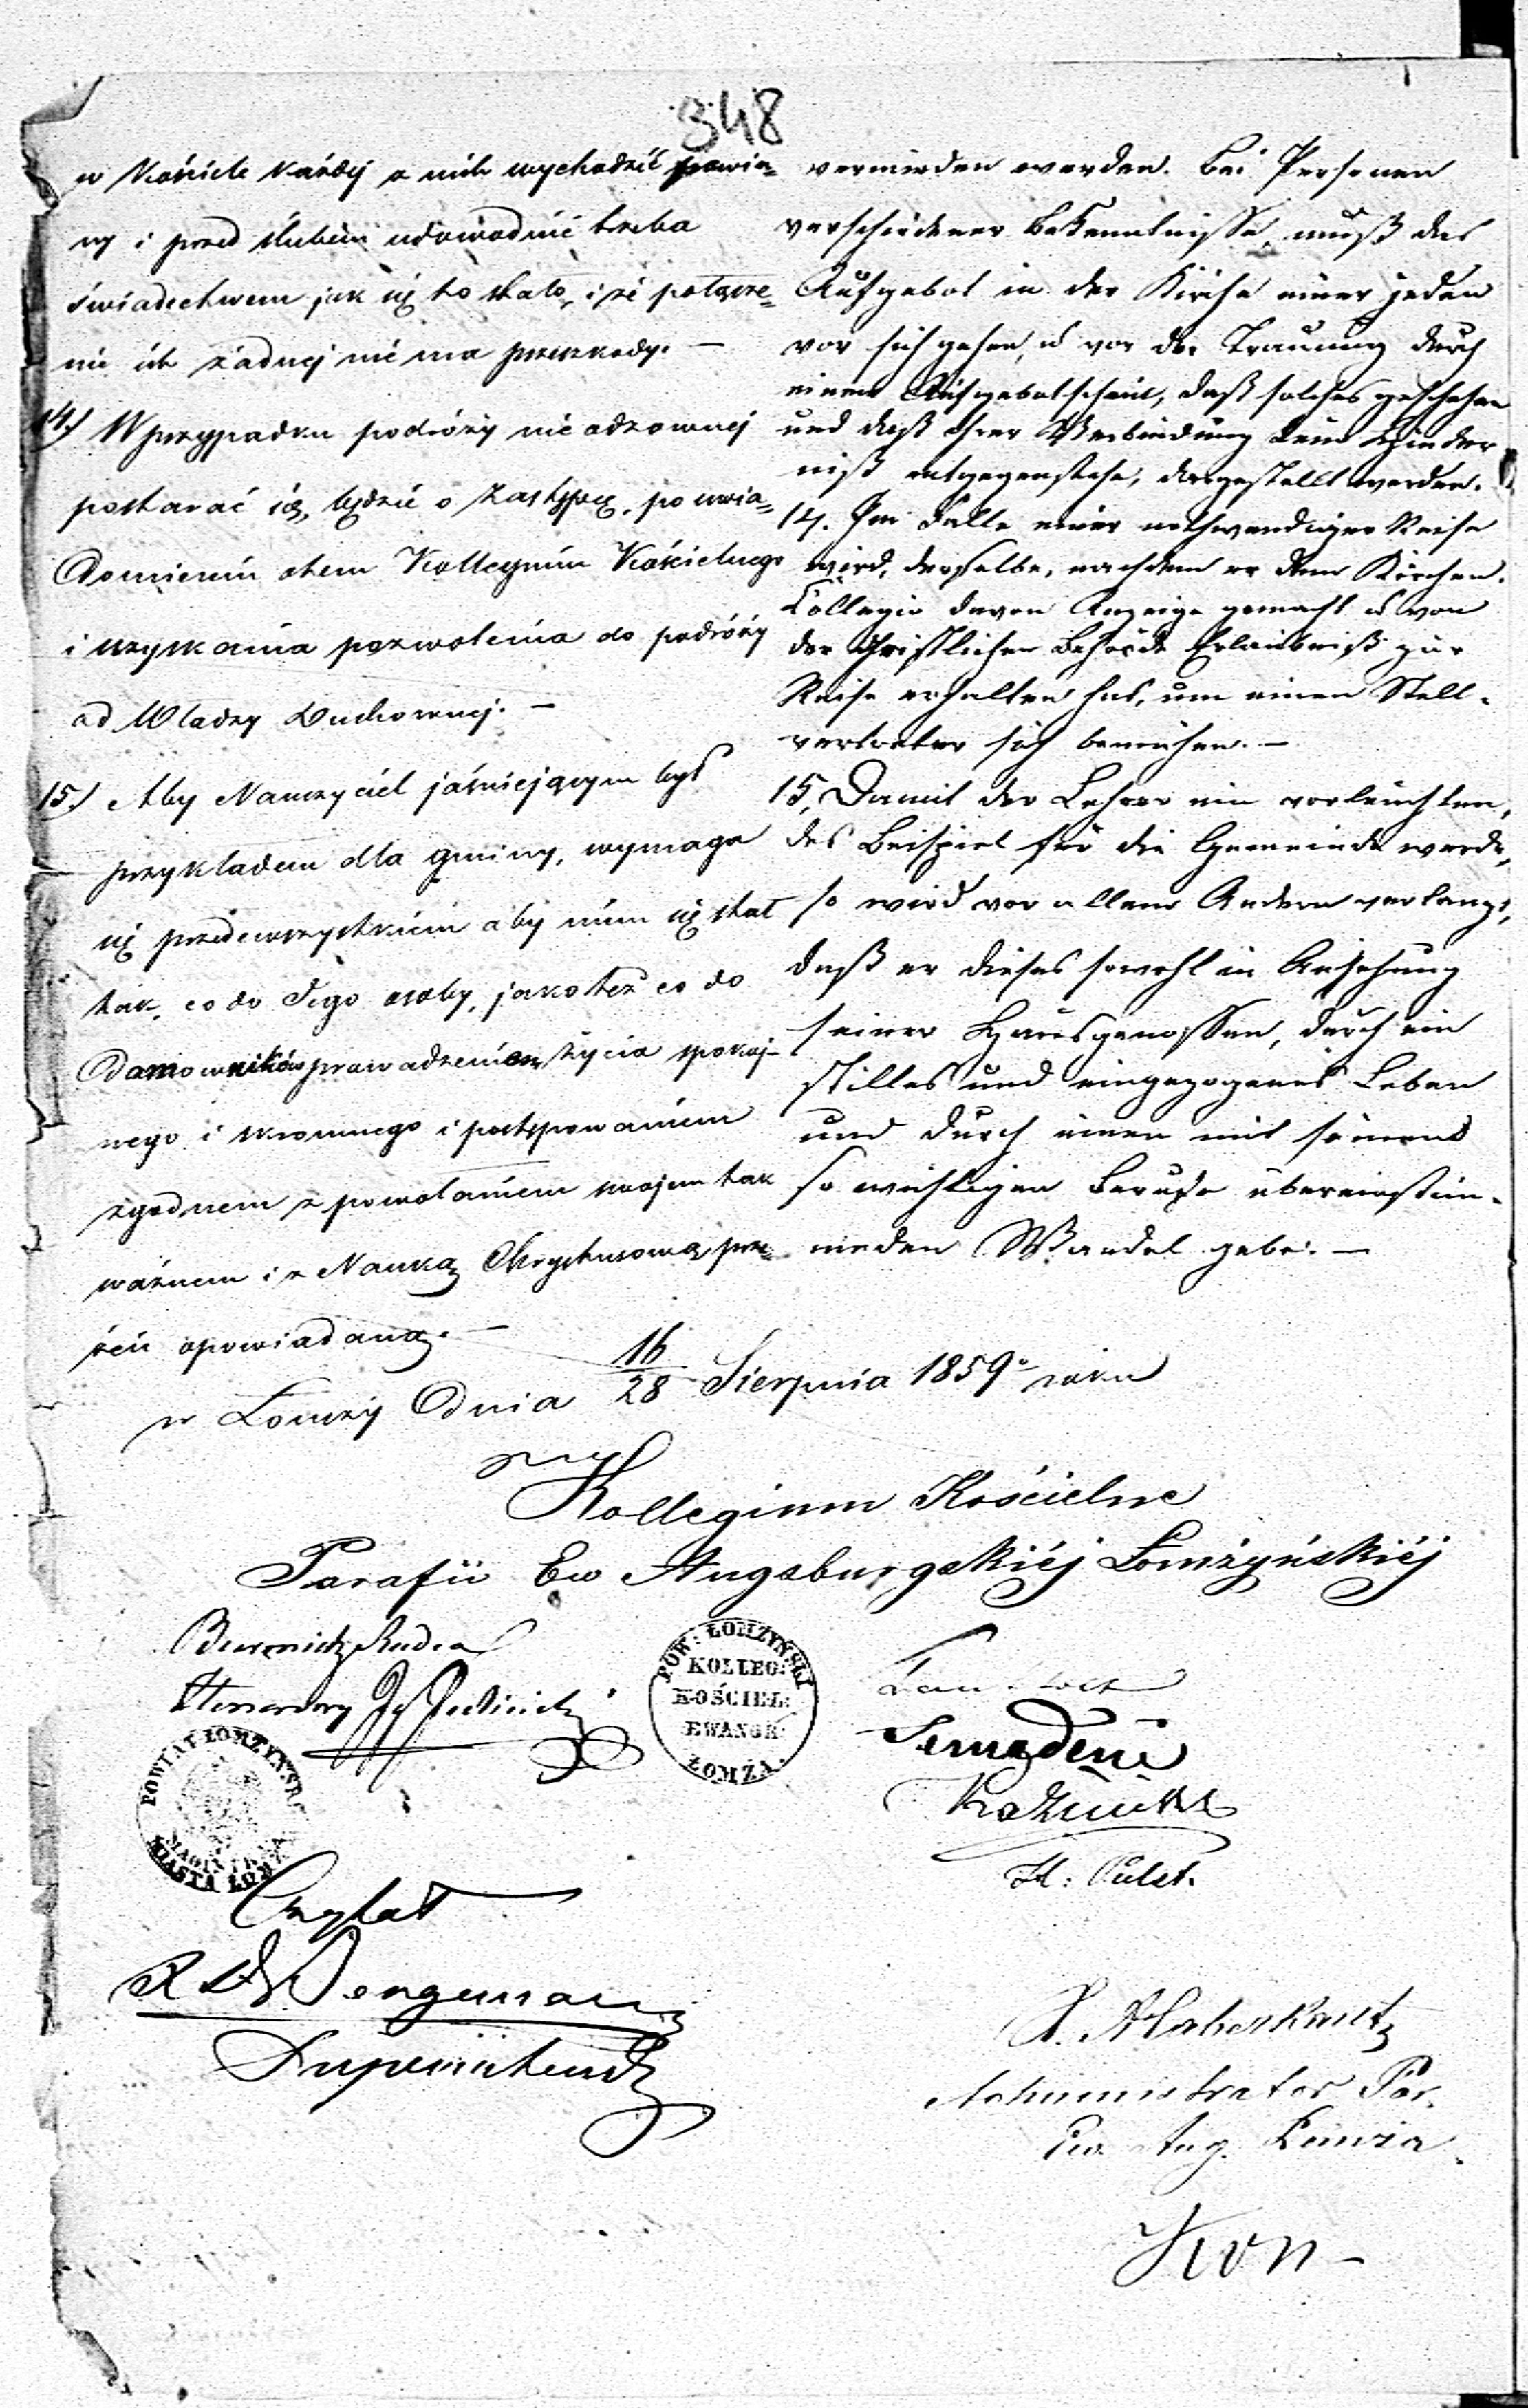 348
w Kościele każdej z nich wychodzić powin=
ny i przed ślubem udowodnić trzeba
świadectwem jak się to stało, i że połącze=
niu ich żadnej nie ma przeszkody. —
14.) W przypadku podróży nie odzownej
postarać się, będzie o Zastępcę, po uwia=
domieniu o tem Kollegium Kościelnego
i uzyskania pozwolenia do podróży
od Władzy Duchownej. —
15.) Aby Nauczyciel jaśniejącym był
przykładem dla gminy, wymaga
się przedewszystkiem aby nim się stał
tak, co do Jego osoby, jako też co do
Domowników prowadzeniem życia spokoj-
nego i skromnego i postępowaniem
zgodnem z powołaniem swojem tak
ważnem i z Nauką Chrystusową prze=
zeń opowiadaną. —
vermieden werden. Bei Personen
verschiedener Bekenntnisse, muß das
Aufgebot in der Kirche einer jeden
vor sich gehen, u vor der Trauung durch
einen Aufgebotschein, daß solches geschehen
und daß ihrer Verbindung kein Hinder
niß entgegenstehe, dargestellt werden.
14. Im Falle einer nothwendigen Reise
wird, derselbe, nachdem er dem Kirchen-
Collegio davon Anzeige gemacht u von
der Geistlichen Behörde Erlaubniß zur
Reise erhalten hat, um einen Stell-
vertreter sich bemühen. —
15, Damit der Lehrer ein vorleuchten-
des Beispiel für die Gemeinde werde,
so wird vor allem Andern verlangt,
daß er dieses sowohl in Ansehung
seiner Hausgenossen, durch ein
stilles und eingezogenes Leben
und durch einen mit seinem
so wichtigen Berufe übereinstim-
menden Wandel gebe. —
w Łomży Dnia 16/28 Sierpnia 1859 roku
Kollegium Kościelne
Parafii Ew Augsburgskiéj Łomżyńskiéj
Burmistrz Radca
Honorowy
POW: ŁOMŻYŃSKI
KOLLEG:
KOŚCIEL:
EWANGE:
ŁOMŻA.
POWIAT ŁOMZYNSKI
MAGISTRAT
MIASTA ŁOMŻY
Semadeni
Czytał
Superintendent
Administrator Par.
Ew. Aug. Łomża
Kon-